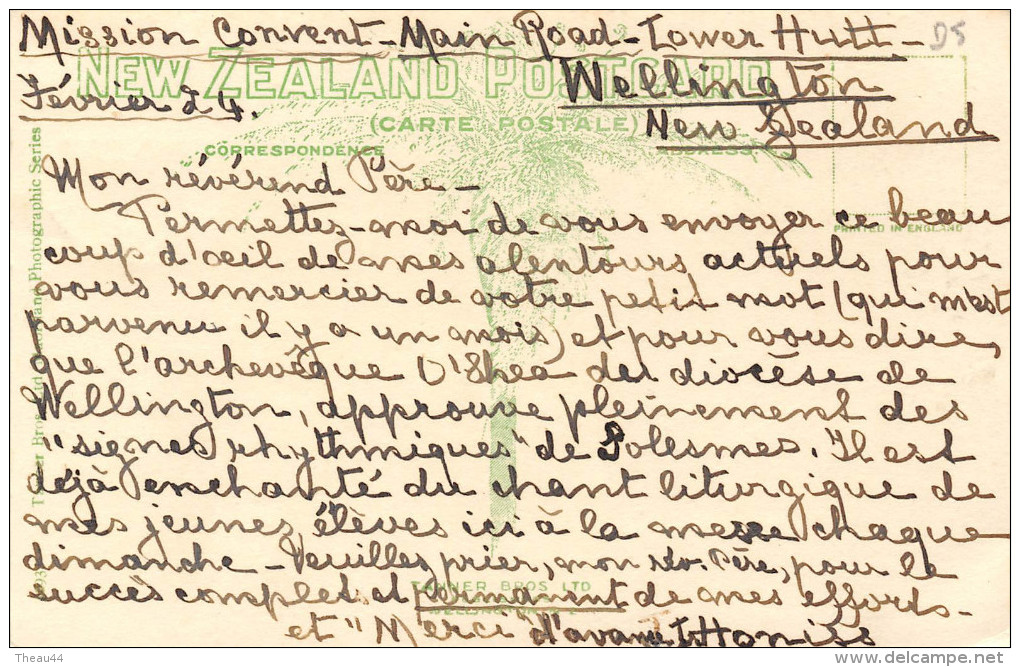 Mission Convent - Main Road - Lower Hutt -
D5
NEW ZEALAND POSTCARD
Wellington
Février 24.
(CARTE POSTALE)
New Zealand
CORRESPONDENCE
ADDRESS
Mon révérend Père -
Permettez-moi de vous envoyer ce beau
PRINTED IN ENGLAND
coup d'œil de mes alentours actuels pour
vous remercier de votre petit mot (qui m'est
parvenu il y a un mois) et pour vous dire,
que l'archevêque O'Shea du diocèse de
Wellington, approuve pleinement des
"signes rhythmiques" de Solesmes. Il est
déjà enchanté du chant liturgique de
mes jeunes élèves ici à la messe chaque
dimanche - Veuillez prier, mon rév. Père, pour le
TANNER BROS LTD
succès complet et permanent de mes efforts -
et "Merci" d'avance
Photographic Series
Theau44
www.delcampe.net